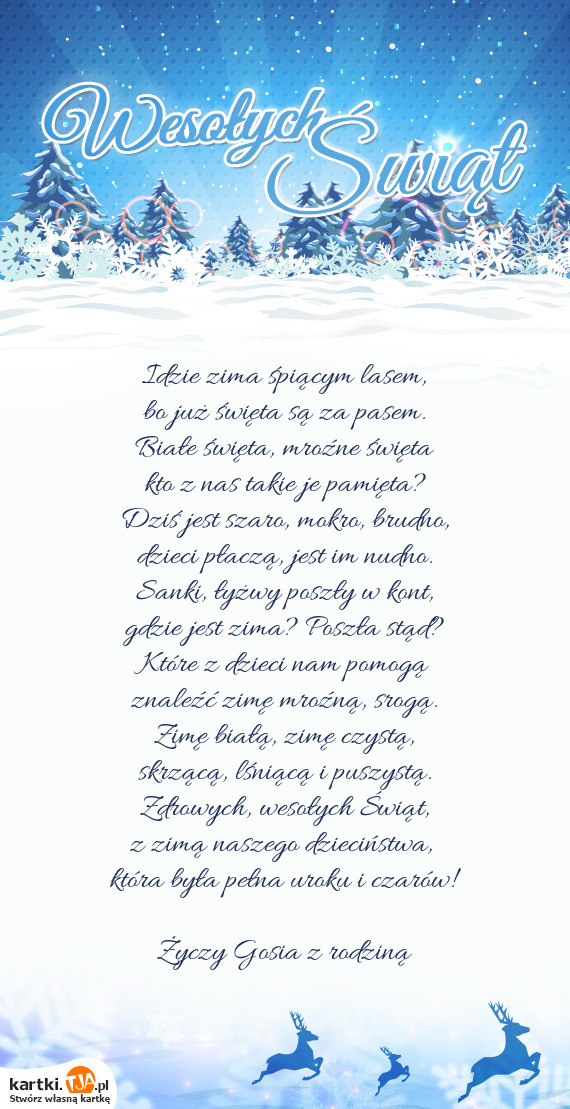 Wesołych
Świąt
Idzie zima śpiącym lasem,
bo już święta są za pasem.
Białe święta, mroźne święta
kto z nas takie je pamięta?
Dziś jest szaro, mokro, brudno,
dzieci płaczą, jest im nudno.
Sanki, łyżwy poszły w kont,
gdzie jest zima? Poszła stąd?
Które z dzieci nam pomogą
znaleźć zimę mroźną, srogą.
Zimę białą, zimę czystą,
skrzącą, lśniącą i puszystą.
Zdrowych, wesołych Świąt,
z zimą naszego dzieciństwa,
która była pełna uroku i czarów!
Życzy Gosia z rodziną
kartki.TJA.pl
Stwórz własną kartkę